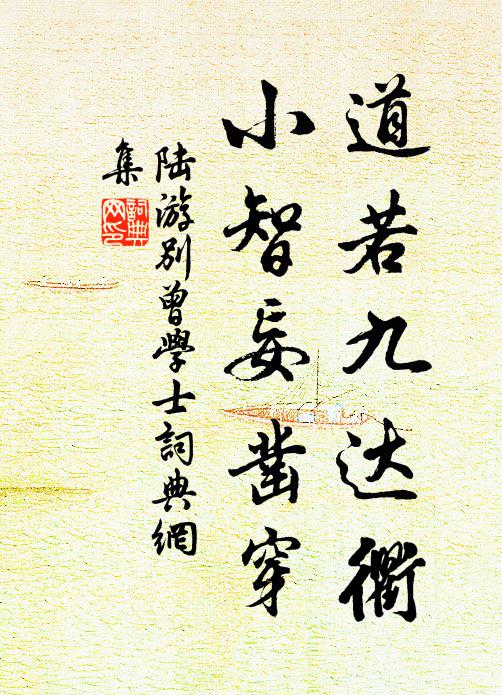 道若九达衢
小智妄凿穿
陆游别曾學士詞典網
集
詞典
网印